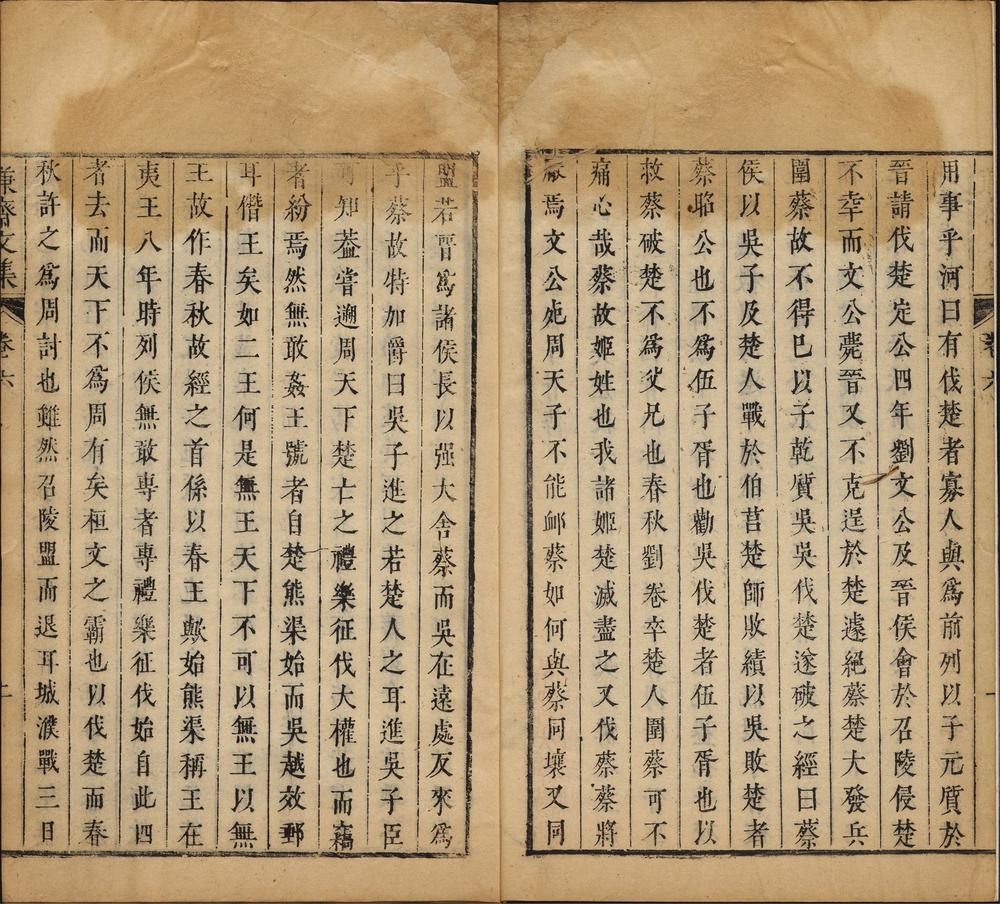 卷六
用事乎河曰有伐楚者寡人與爲前列以子元質於
晉請伐楚定公四年劉文公及晉侯會於召陵侵楚
不幸而文公薨晉又不克逞於楚遽絕蔡楚大發兵
圍蔡故不得已以子乾質吳吳伐楚遂破之經曰蔡
侯以吳子及楚人戰於伯莒楚師敗績以吳敗楚者
蔡昭公也不爲伍子胥也勸吳伐楚者伍子胥也以
救蔡破楚不爲父兄也春秋劉卷卒楚人圍蔡可不
痛心哉蔡故姬姓也我諸姬楚滅盡之又伐蔡蔡將
厭焉文公宛周天子不能邮蔡如何與蔡同壤又同
盟若晉爲諸侯長以强大舍蔡而吳在遠處反來爲
乎蔡故特加爵曰吳子進之若楚人之耳進吳子臣
可知葢嘗遡周天下楚亡之禮樂征伐大權也而竊
者紛焉然無敢姦王號者自楚熊渠始而吳越效郵
耳僭王矣如二王何是無王天下不可以無王以無
王故作春秋故經之首係以春王歟始熊渠稱王在
夷王八年時列侯無敢專者專禮樂征伐始自此四
者去而天下不爲周有矣桓文之霸也以伐楚而春
秋許之爲周討也雖然召陵盟而退耳城濮戰三日
謙齋文集 卷六 二